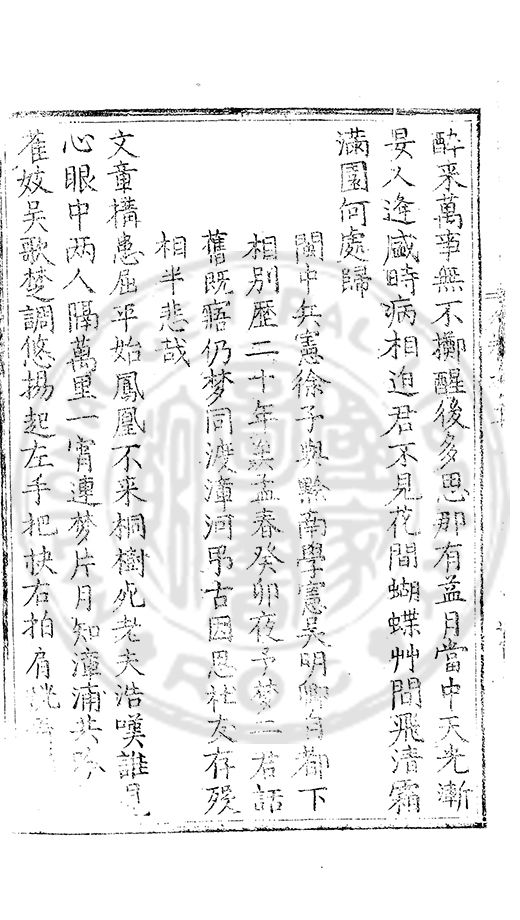 醉来萬事無不擲醒後多思那有益月當中天光漸
晏人逢盛時病相迫君不見花間蝴蝶艸間飛清霜
滿園何處歸
閩中兵憲徐子與黔南學憲吳明卿自都下
相別歷二十年矣孟春癸卯夜予夢二君話
舊既寤仍梦同渡漳河吊古因思社友存殁
相半悲哉
文章搆患屈平始鳳凰不来桐樹死老夫浩嘆誰見
心眼中两人隔萬里一宵連梦片月知漳浦共
崔妓吴歌楚調悠揚起左手把袂右拍肩